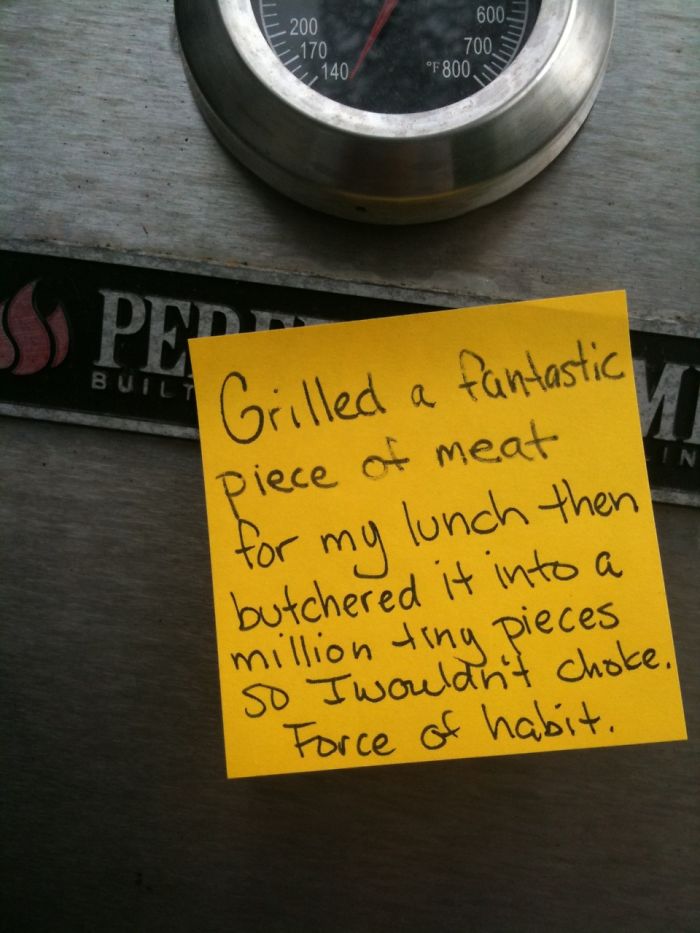 200
170
140
600
700
°F 800
BUILT
IN
Grilled a fantastic
piece of meat
for my lunch then
butchered it into a
million tiny pieces
so I wouldn't choke.
Force of habit.